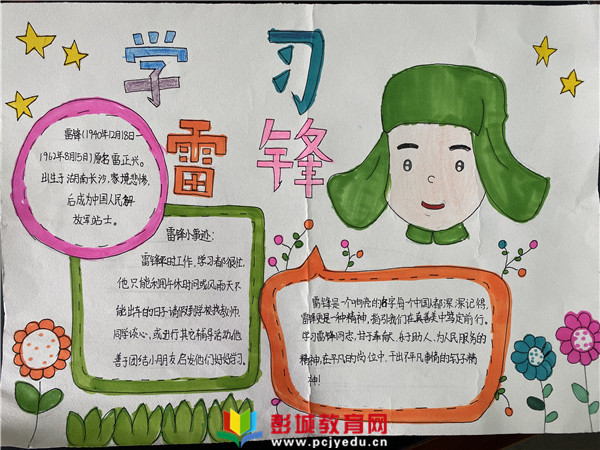 学 习
雷 锋
雷锋(1940年12月18日—
1962年8月15日)原名雷正兴。
出生于湖南长沙,家境悲惨,
后成为中国人民解
放军战士。
雷锋小事迹:
雷锋平时工作、学习都很忙,
他只能利用午休时间或风雨天不
能出车的日子请假到学校找教师,
同学谈心,或进行其它辅导活动,他
善于团结小朋友启发他们好好学习。
雷锋是一个响亮的名字每个中国人都深深记得,
雷锋更是一种精神,指引我们在真善美中笃定前行。
学习雷锋同志,甘于奉献、好于助人、为人民服务的
精神,在平凡的岗位中,干出不平凡事情的钉子精
神!
彭城教育网
www.pcjyedu.cn